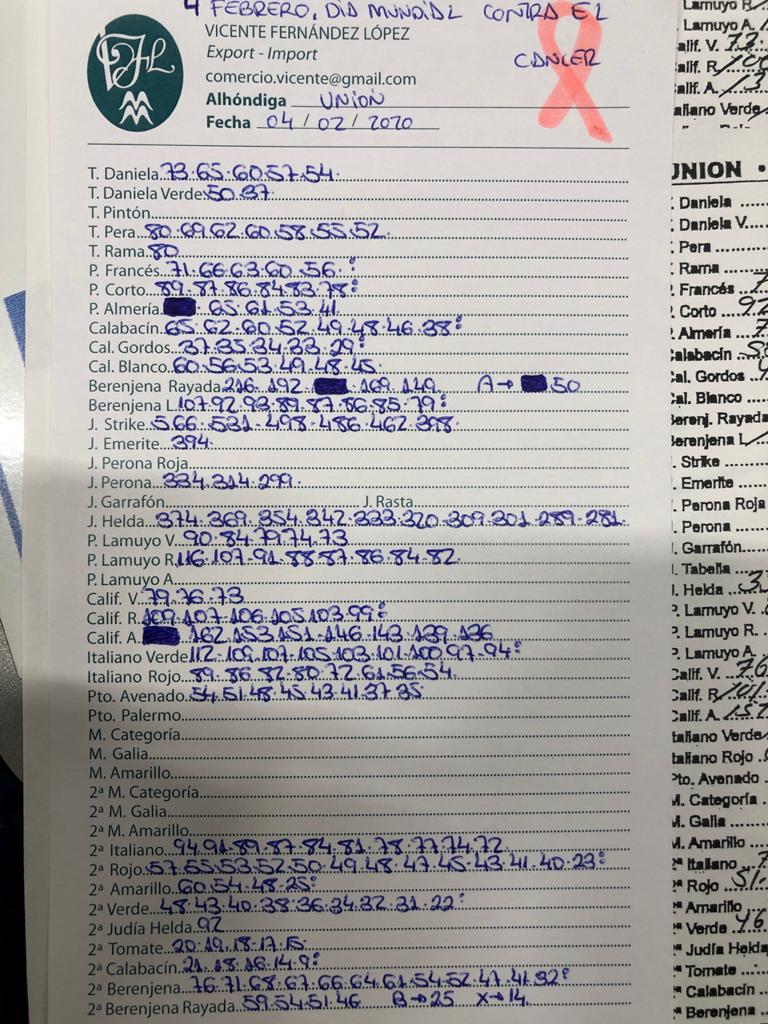 4 FEBRERO, DIA MUNDIAL CONTRA EL
CANCER
VICENTE FERNÁNDEZ LÓPEZ
Export - Import
comercio.vicente@gmail.com
Alhóndiga UNION
Fecha 04 / 02 / 2020
T. Daniela 73.65.60.57.54.
T. Daniela Verde 50.37
T. Pintón
T. Pera 80.69.62.60.58.55.52.
T. Rama 80
P. Francés 71.66.63.60.56.:
P. Corto 89.87.86.84.83.78:
P. Almería 65.61.53.41
Calabacín 65.62.60.52.49.48.46.38:
Cal. Gordos 37.35.34.33.29:
Cal. Blanco 60.56.53.49.48.45.
Berenjena Rayada 216.192. 169.149 A→ 50
Berenjena L. 107.92.93.89.87.86.85.79:
J. Strike 566.531.498.486.462.398.
J. Emerite 394.
J. Perona Roja
J. Perona 334.314.299.
J. Garrafón J. Rasta
J. Helda 374.369.354.342.333.320.309.301.289.281.
P. Lamuyo V. 90.84.79.74.73
P. Lamuyo R. 116.107.91.88.87.86.84.82.
P. Lamuyo A
Calif. V. 79.76.73
Calif. R. 109.107.106.105.103.99:
Calif. A. 162.153.151.146.143.139.136
Italiano Verde 112.109.107.105.103.101.100.97.94:
Italiano Rojo 89.86.82.80.72.61.56.54.
Pto. Avenado 54.51.48.45.43.41.37.35
Pto. Palermo
M. Categoría
M. Galia
M. Amarillo
2ª M. Categoría
2ª M. Galia
2ª M. Amarillo
2ª Italiano 94.91.89.87.84.81.78.77.74.72
2ª Rojo 57.55.53.52.50.49.48.47.45.43.41.40.23:
2ª Amarillo 60.54.48.25:
2ª Verde 48.43.40.38.36.34.32.31.22:
2ª Judía Helda 92
2ª Tomate 20.19.18.17.15
2ª Calabacín 21.18.16.14.9:
2ª Berenjena 76.71.68.67.66.64.61.54.52.47.41.32:
2ª Berenjena Rayada 59.54.51.46 B→25 X→14
Lamuyo A.
Calif. V.
Calif. R.
Calif. A.
Italiano Verde
UNION
Daniela
Daniela V.
Pera
Rama
Francés
Corto
Almería
Calabacín
Cal. Gordos
Cal. Blanco
Berenj. Rayada
Berenjena L
Strike
Emerite
Perona Roja
Perona
Garrafón
Tabella
Helda
P. Lamuyo V.
P. Lamuyo R.
P. Lamuyo A
Calif. V. 76
Calif. R
Calif. A
Italiano Verde
Italiano Rojo
Pto. Avenado
M. Categoría
M. Galia
M. Amarillo
2ª Italiano
2ª Rojo
2ª Amarillo
2ª Verde
2ª Judía Helda
2ª Tomate
2ª Calabacín
2ª Berenjena